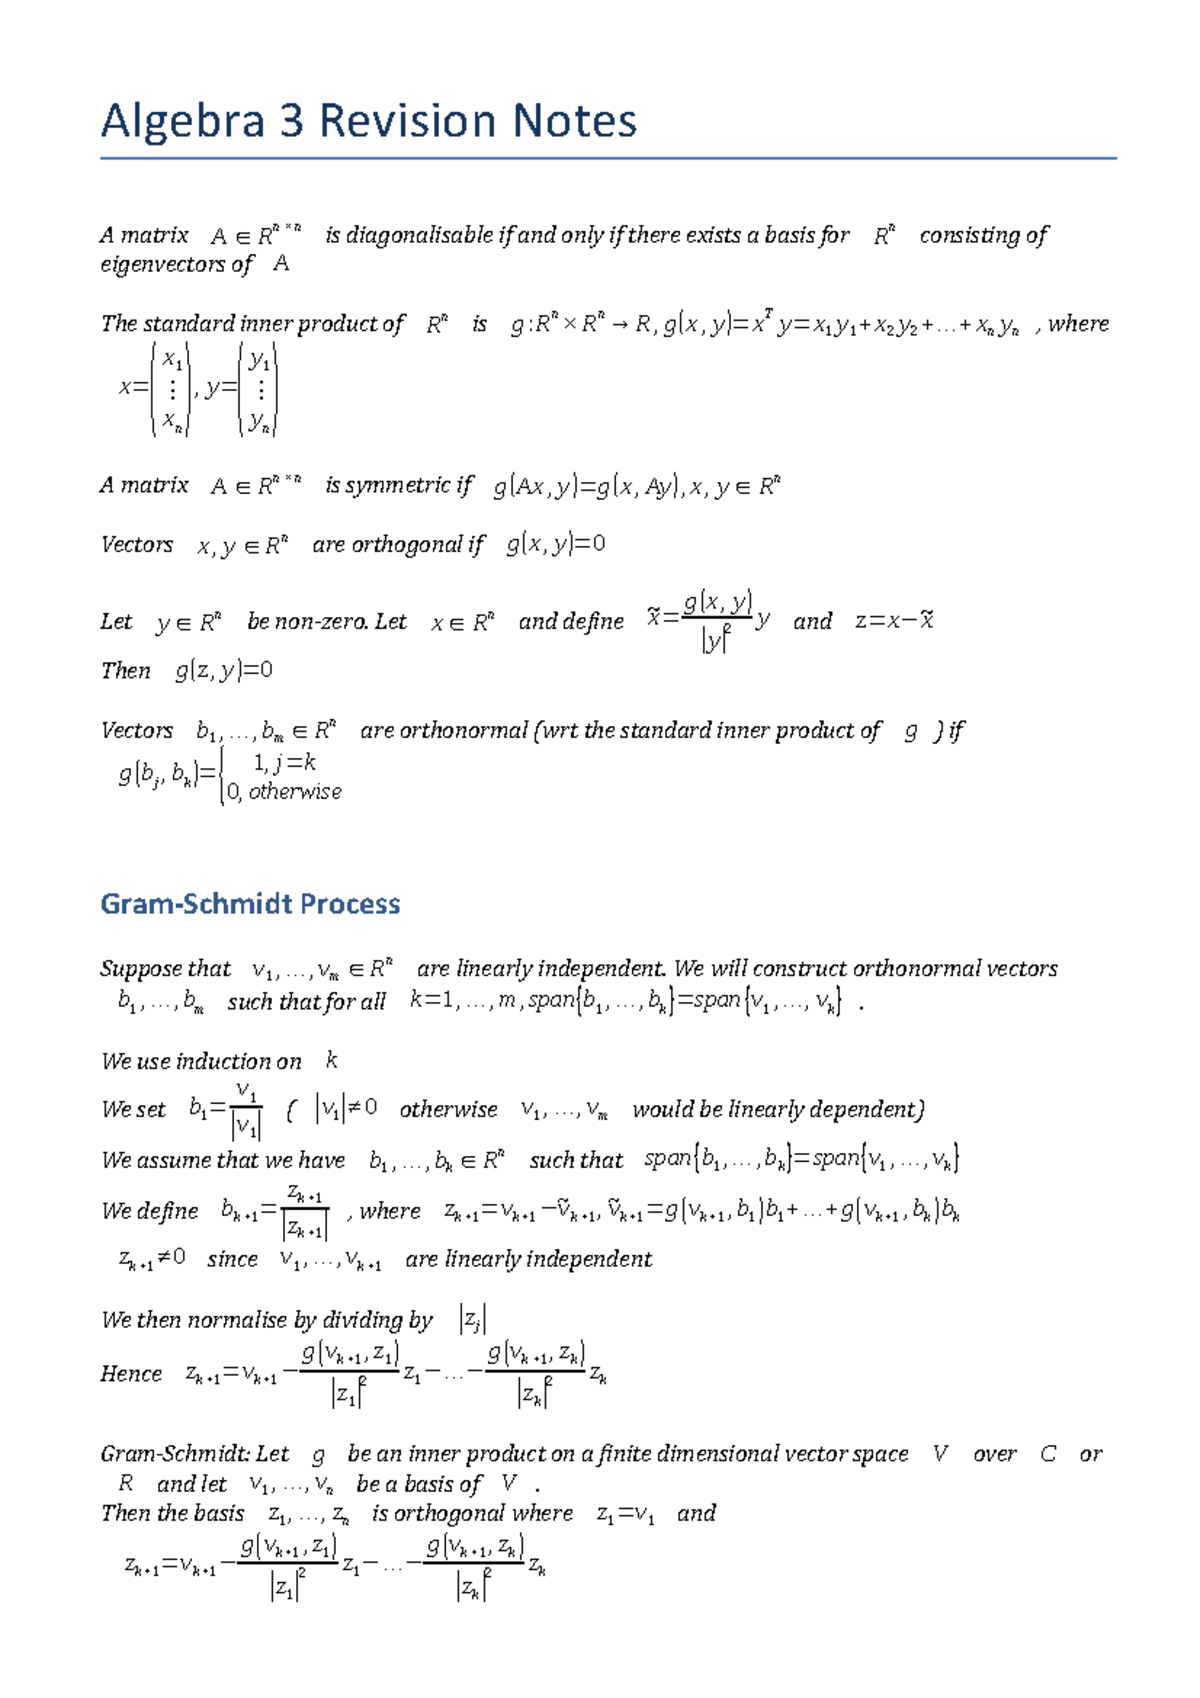 Algebra 3 Revision Notes
A matrix A ∈ Rⁿˣⁿ is diagonalisable if and only if there exists a basis for Rⁿ consisting of
eigenvectors of A
The standard inner product of Rⁿ is g:Rⁿ×Rⁿ→R, g(x, y)=xᵀy=x₁y₁+x₂y₂+…+xₙyₙ , where
x=(x₁ ⋮ xₙ), y=(y₁ ⋮ yₙ)
A matrix A ∈ Rⁿˣⁿ is symmetric if g(Ax, y)=g(x, Ay), x, y ∈ Rⁿ
Vectors x, y ∈ Rⁿ are orthogonal if g(x, y)=0
Let y ∈ Rⁿ be non-zero. Let x ∈ Rⁿ and define x̃=g(x, y)/|y|² y and z=x−x̃
Then g(z, y)=0
Vectors b₁, …, bₘ ∈ Rⁿ are orthonormal (wrt the standard inner product of g ) if
g(bⱼ, bₖ)={1, j=k
0, otherwise
Gram-Schmidt Process
Suppose that v₁, …, vₘ ∈ Rⁿ are linearly independent. We will construct orthonormal vectors
b₁, …, bₘ such that for all k=1, …, m, span{b₁, …, bₖ}=span{v₁, …, vₖ} .
We use induction on k
We set b₁=v₁/|v₁| ( |v₁|≠0 otherwise v₁, …, vₘ would be linearly dependent)
We assume that we have b₁, …, bₖ ∈ Rⁿ such that span{b₁, …, bₖ}=span{v₁, …, vₖ}
We define bₖ₊₁=zₖ₊₁/|zₖ₊₁| , where zₖ₊₁=vₖ₊₁−ṽₖ₊₁, ṽₖ₊₁=g(vₖ₊₁, b₁)b₁+…+g(vₖ₊₁, bₖ)bₖ
zₖ₊₁≠0 since v₁, …, vₖ₊₁ are linearly independent
We then normalise by dividing by |zⱼ|
Hence zₖ₊₁=vₖ₊₁−g(vₖ₊₁, z₁)/|z₁|² z₁−…−g(vₖ₊₁, zₖ)/|zₖ|² zₖ
Gram-Schmidt: Let g be an inner product on a finite dimensional vector space V over C or
R and let v₁, …, vₙ be a basis of V .
Then the basis z₁, …, zₙ is orthogonal where z₁=v₁ and
zₖ₊₁=vₖ₊₁−g(vₖ₊₁, z₁)/|z₁|² z₁−…−g(vₖ₊₁, zₖ)/|zₖ|² zₖ